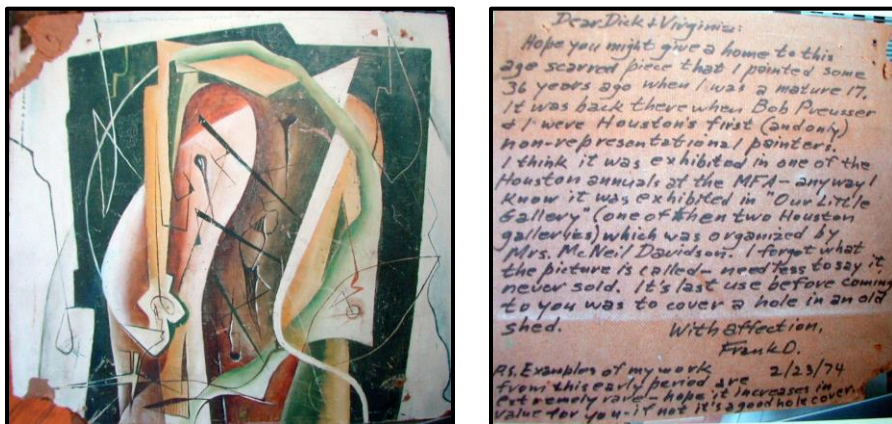 Dear Dick & Virginia:
Hope you might give a home to this
age scarred piece that I painted some
36 years ago when I was a mature 17.
It was back there when Bob Preusser
& I were Houston's first (and only)
non-representational painters.
I think it was exhibited in one of the
Houston annuals at the MFA - anyway I
know it was exhibited in "Our Little
Gallery" (one of then two Houston
galleries) which was organized by
Mrs. McNeil Davidson. I forgot what
the picture is called - needless to say it
never sold. It's last use before coming
to you was to cover a hole in an old
shed. With affection,
Frank D.
P.S. Examples of my work 2/23/74
from this early period are
extremely rare - hope it increases in
value for you - if not it's a good hole cover.